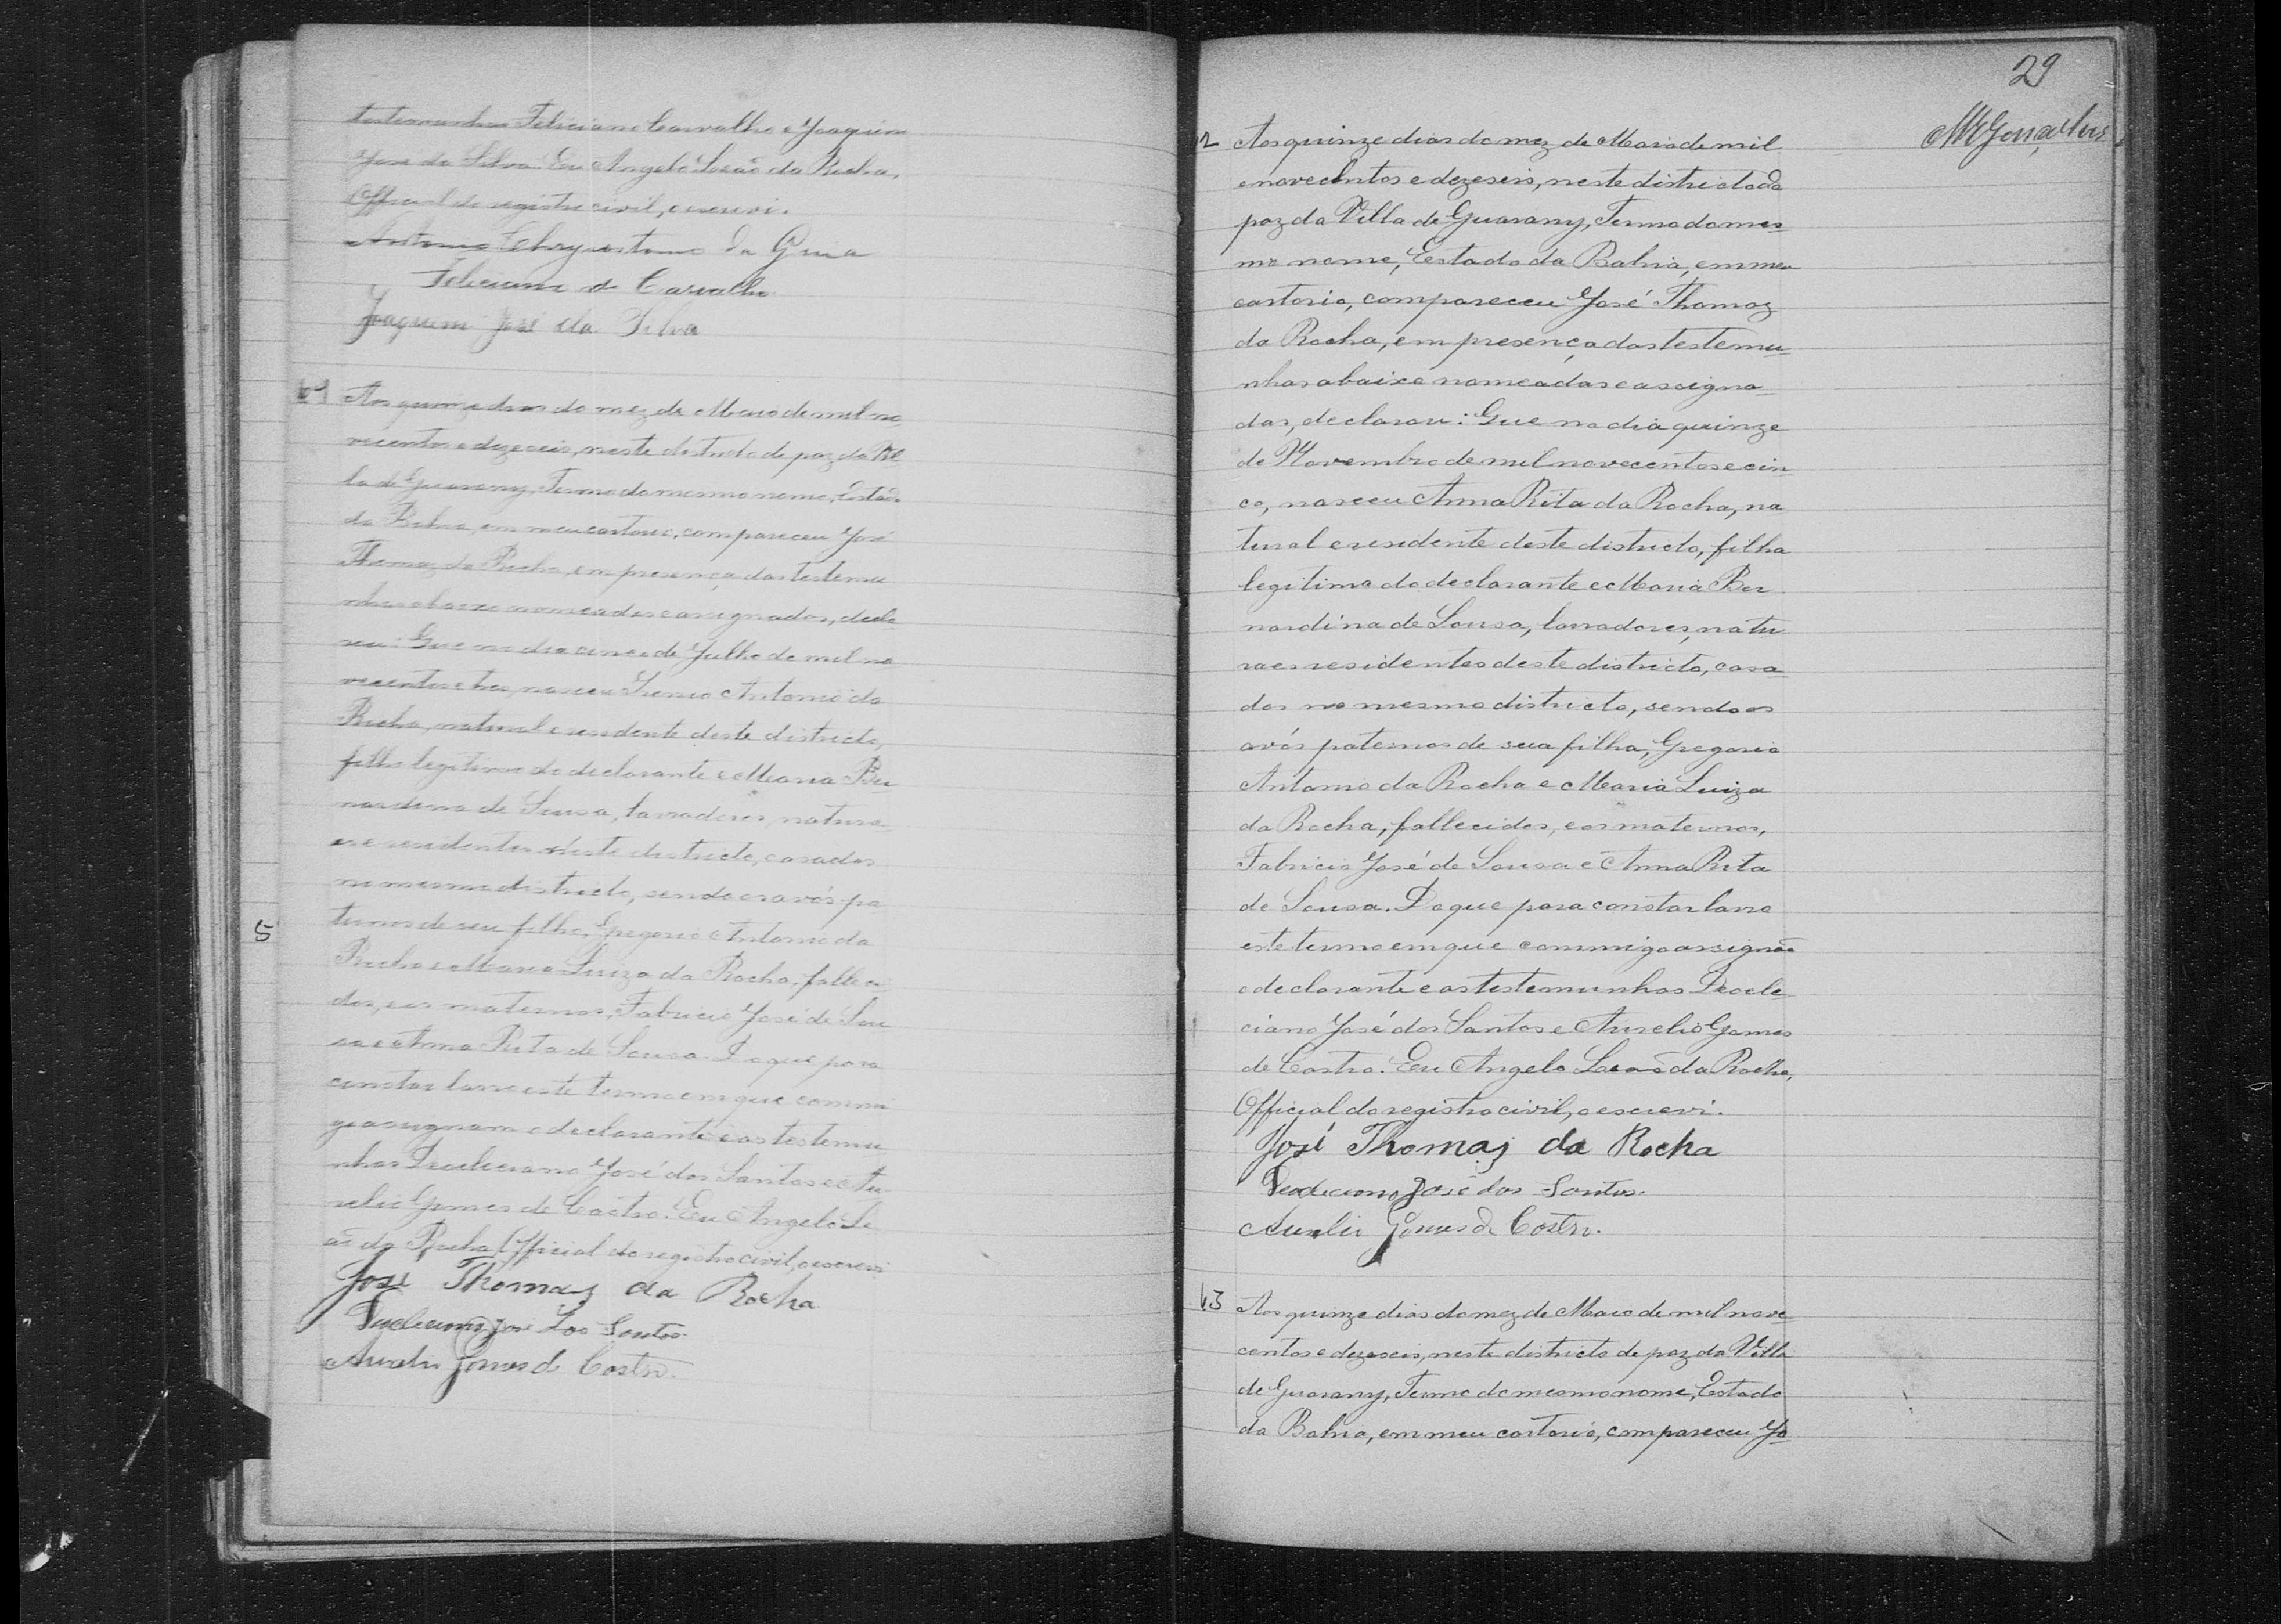 testemunhas Feliciano Carvalho e Joaquim
José da Silva. Eu Angelo Leão da Rocha,
Official do registro civil, escrevi.
Antonio Chrysostomo da Guia
Feliciano de Carvalho
Joaquim José da Silva
61 Aos quinze dias do mez de Maio de mil no
vecentos e dezeseis, neste districto de paz da Vil
la de Guarany, Termo do mesmo nome, Estado
da Bahia, em meu cartorio, compareceu José
Thomaz da Rocha, em presença das testemu
nhas abaixo nomeadas e assignadas, decla
rou: Que no dia cinco de Julho de mil no
vecentos e tres, nasceu Antonio da
Rocha, natural e residente deste districto,
filho legitimo do declarante e Maria Ber
nardina de Sousa, lavradores, natura
es e residentes deste districto, casados
no mesmo districto, sendo os avós pa
ternos de seu filho, Gregorio Antonio da
5
Rocha e Maria Luiza da Rocha, falleci
dos, e os maternos, Fabricio José de Sou
sa e Anna Rita de Sousa. Do que para
constar lavro este termo em que commi
go assignam o declarante e as testemu
nhas Deocleciano José dos Santos e Au
relio Gomes de Castro. Eu Angelo Le
ão da Rocha, Official do registro civil, o escrevi
José Thomaz da Rocha
Deocleciano José dos Santos.
Aurelio Gomes de Castro.
29
MGonçalves
2 Aos quinze dias do mez de Maio de mil
e novecentos e dezeseis, neste districto da
paz da Villa de Guarany, Termo do mes-
mo nome, Estado da Bahia, em meu
cartorio, compareceu José Thomaz
da Rocha, em presença das testemu-
nhas abaixo nomeadas e assigna-
das, declarou: Que no dia quinze
de Novembro de mil novecentos e cin
co, nasceu Anna Rita da Rocha, na
tural e residente deste districto, filha
legitima do declarante e Maria Ber
nardina de Sousa, lavradores, natu
raes residentes deste districto, casa
dos no mesmo districto, sendo os
avós paternos de sua filha, Gregorio
Antonio da Rocha e Maria Luiza
da Rocha, fallecidos, e os maternos,
Fabricio José de Sousa e Anna Rita
de Sousa. Do que para constar lavro
este termo em que commigo assignão
o declarante e as testemunhas Deocle-
ciano José dos Santos e Aurelio Gomes
de Castro. Eu Angelo Leão da Rocha,
Official do registro civil, o escrevi.
José Thomaz da Rocha
Deocleciano José dos Santos.
Aurelio Gomes de Castro.
63 Aos quinze dias do mez de Maio de mil nove-
centos e dezeseis, neste districto de paz da Villa
de Guarany, Termo do mesmo nome, Estado
da Bahia, em meu cartorio, compareceu Jo